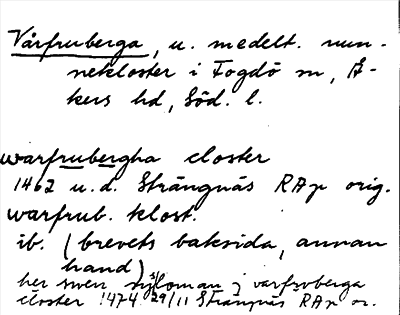 Vårfruberga, u. medelt. nun-
nekloster i Fogdö sn, Å-
kers hd, Söd. l.
warfrubergha closter
1462 u.d. Strängnäs RAp orig.
warfrub. klost.
ib. (brevets baksida, annan
hand)
her swen sysloman j varfrvberga
closter 1474 29/11 Strängnäs RAp or.